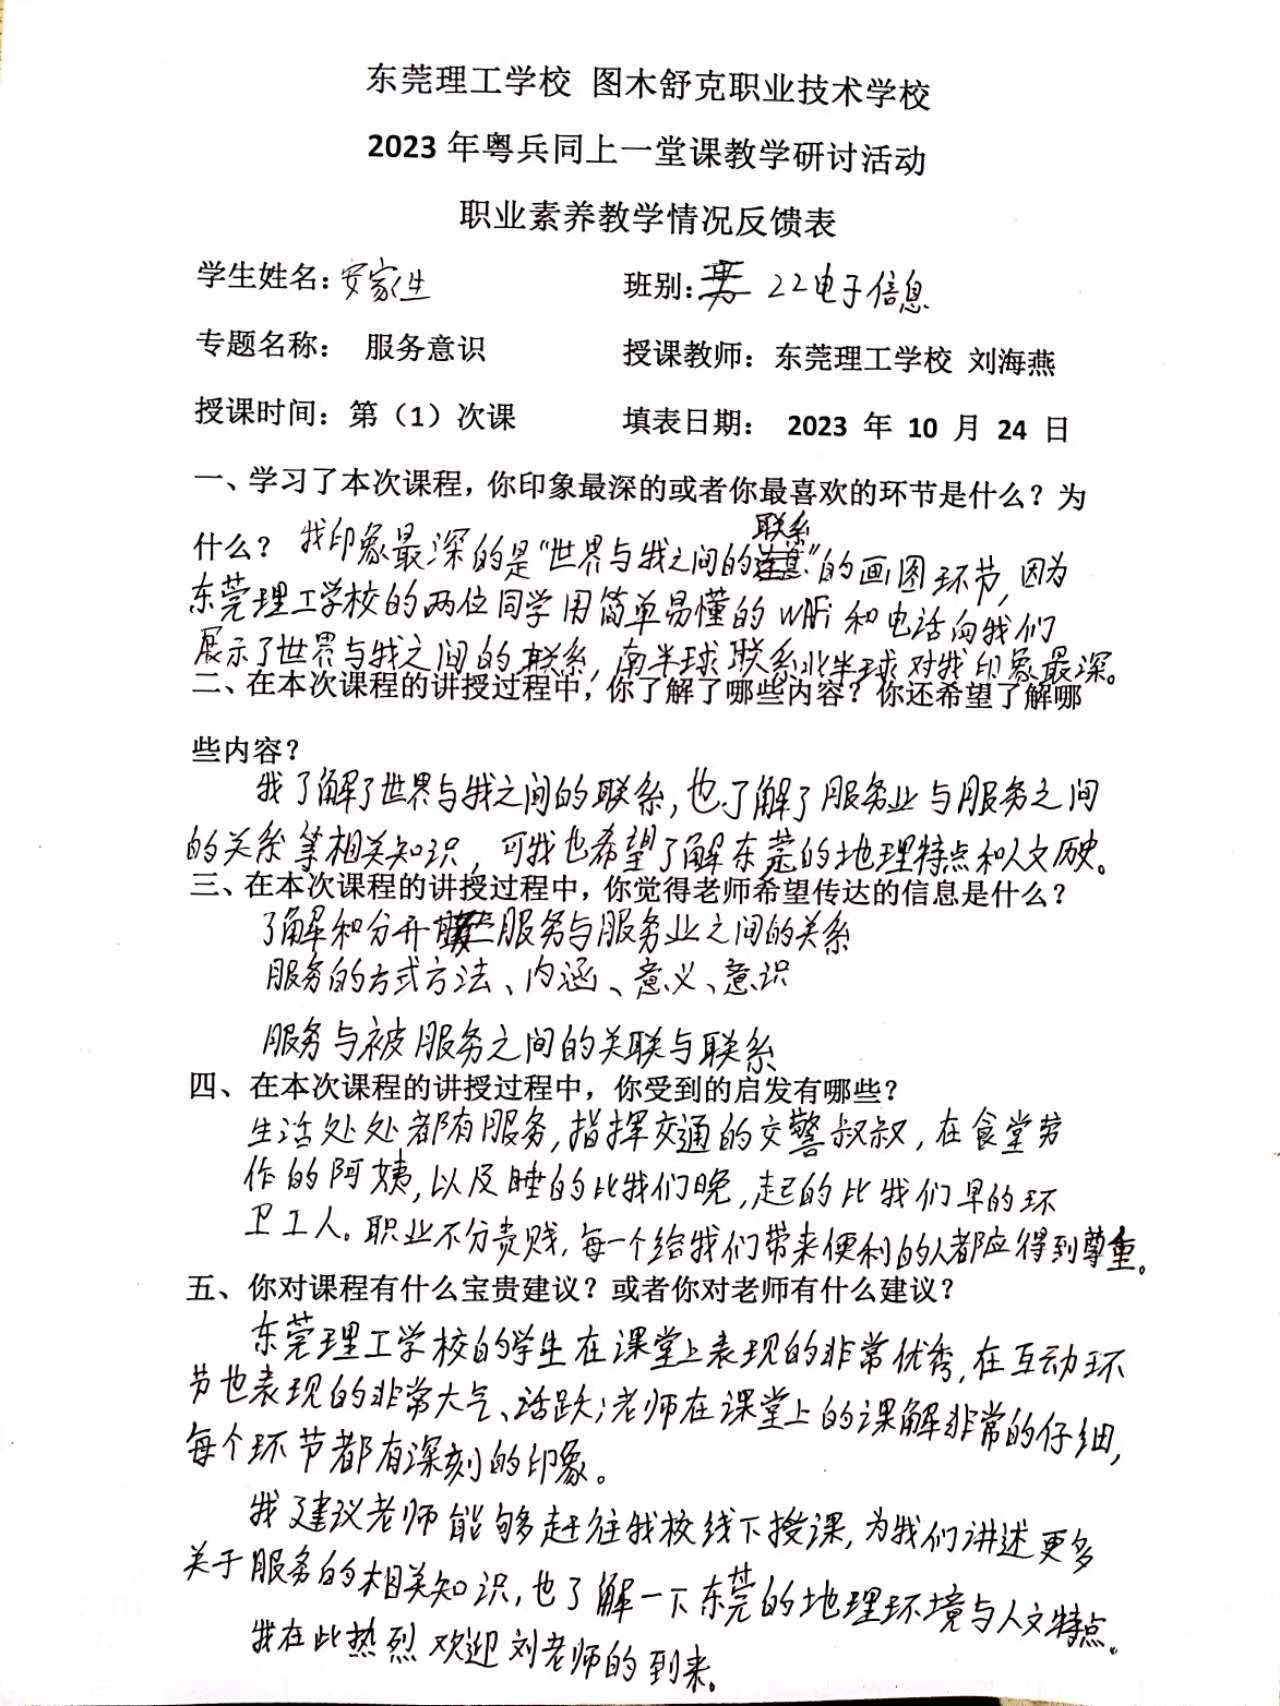 东莞理工学校 图木舒克职业技术学校
2023 年粤兵同上一堂课教学研讨活动
职业素养教学情况反馈表
学生姓名：安家生 班别： 22电子信息
专题名称： 服务意识 授课教师：东莞理工学校 刘海燕
授课时间：第（1）次课 填表日期： 2023 年 10 月 24 日
一、学习了本次课程，你印象最深的或者你最喜欢的环节是什么？为
联系
什么？ 我印象最深的是“世界与我之间的”的画图环节，因为
东莞理工学校的两位同学用简单易懂的WiFi和电话向我们
展示了世界与我之间的联系，南半球联系北半球对我印象最深。
二、在本次课程的讲授过程中，你了解了哪些内容？你还希望了解哪
些内容？
我了解了世界与我之间的联系，也了解了服务业与服务之间
的关系等相关知识，可我也希望了解东莞的地理特点和人文历史。
三、在本次课程的讲授过程中，你觉得老师希望传达的信息是什么？
了解和分开服务与服务业之间的关系
服务的方式方法、内涵、意义、意识
服务与被服务之间的关联与联系
四、在本次课程的讲授过程中，你受到的启发有哪些？
生活处处都有服务，指挥交通的交警叔叔，在食堂劳
作的阿姨，以及睡的比我们晚，起的比我们早的环
卫工人。职业不分贵贱，每一个给我们带来便利的人都应得到尊重。
五、你对课程有什么宝贵建议？或者你对老师有什么建议？
东莞理工学校的学生在课堂上表现的非常优秀，在互动环
节也表现的非常大气、活跃；老师在课堂上的课解非常的仔细，
每个环节都有深刻的印象。
我建议老师能够赶往我校线下授课，为我们讲述更多
关于服务的相关知识，也了解一下东莞的地理环境与人文特点。
我在此热烈欢迎刘老师的到来。